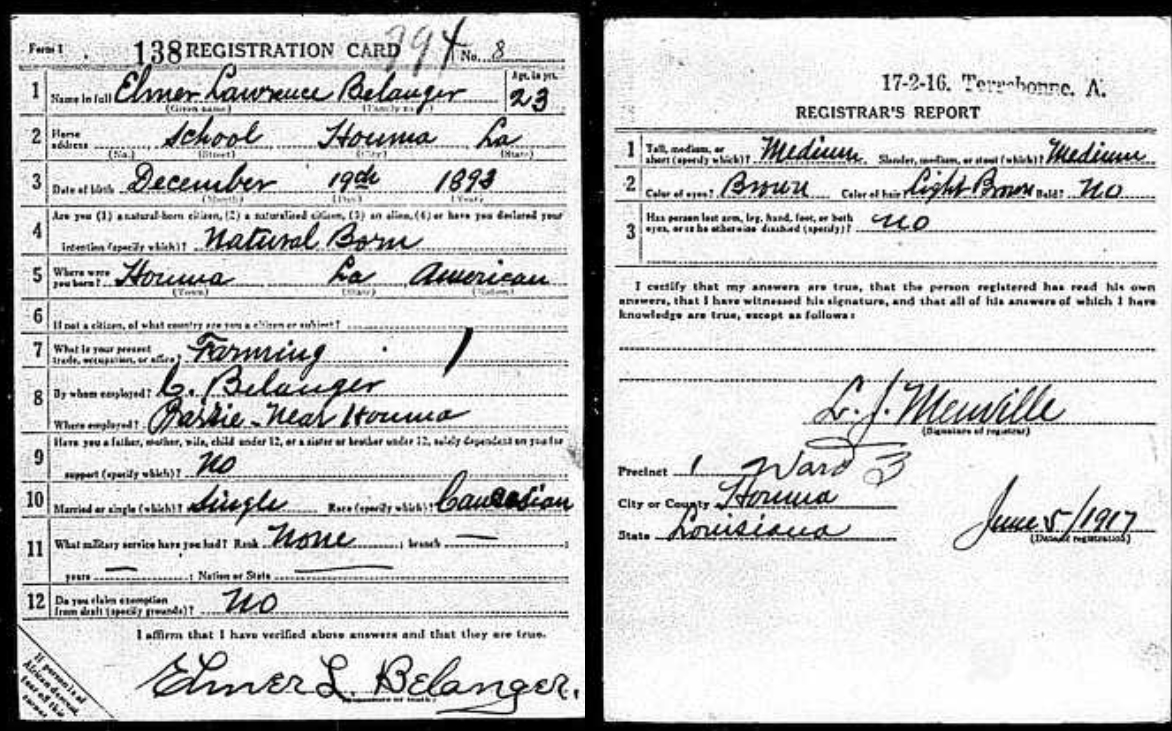 Form 1 138 REGISTRATION CARD 994 No. 8
1 Name in full Elmer Lawrence Belanger Age, in yrs. 23
(Given name) (Family name)
2 Home address School Houma La
(No.) (Street) (City) (State)
3 Date of birth December 19th 1893
(Month) (Day) (Year)
4 Are you (1) a natural-born citizen, (2) a naturalized citizen, (3) an alien, (4) or have you declared your
intention (specify which)? Natural Born
5 Where were you born? Houma La American
(Town) (State) (Nation)
6 If not a citizen, of what country are you a citizen or subject?
7 What is your present trade, occupation, or office? Farming
8 By whom employed? C. Belanger
Where employed? Near Houma
9 Have you a father, mother, wife, child under 12, or a sister or brother under 12, solely dependent on you for
support (specify which)? No
10 Married or single (which)? Single Race (specify which)? Caucasian
11 What military service have you had? Rank None ; branch — ;
years — ; Nation or State
12 Do you claim exemption from draft (specify grounds)? No
I affirm that I have verified above answers and that they are true.
Elmer L. Belanger.
(Signature or mark)
If person is of
African descent,
tear off this
corner
17-2-16. Terrebonne. A.
REGISTRAR'S REPORT
1 Tall, medium, or short (specify which)? Medium Slender, medium, or stout (which)? Medium
2 Color of eyes? Brown Color of hair? Light Brown Bald? No
3 Has person lost arm, leg, hand, foot, or both
eyes, or is he otherwise disabled (specify)? No
I certify that my answers are true, that the person registered has read his own
answers, that I have witnessed his signature, and that all of his answers of which I have
knowledge are true, except as follows:
L. J. Menville
(Signature of registrar)
Precinct 1 Ward 3
City or County Houma
State Louisiana June 5/1917
(Date of registration)